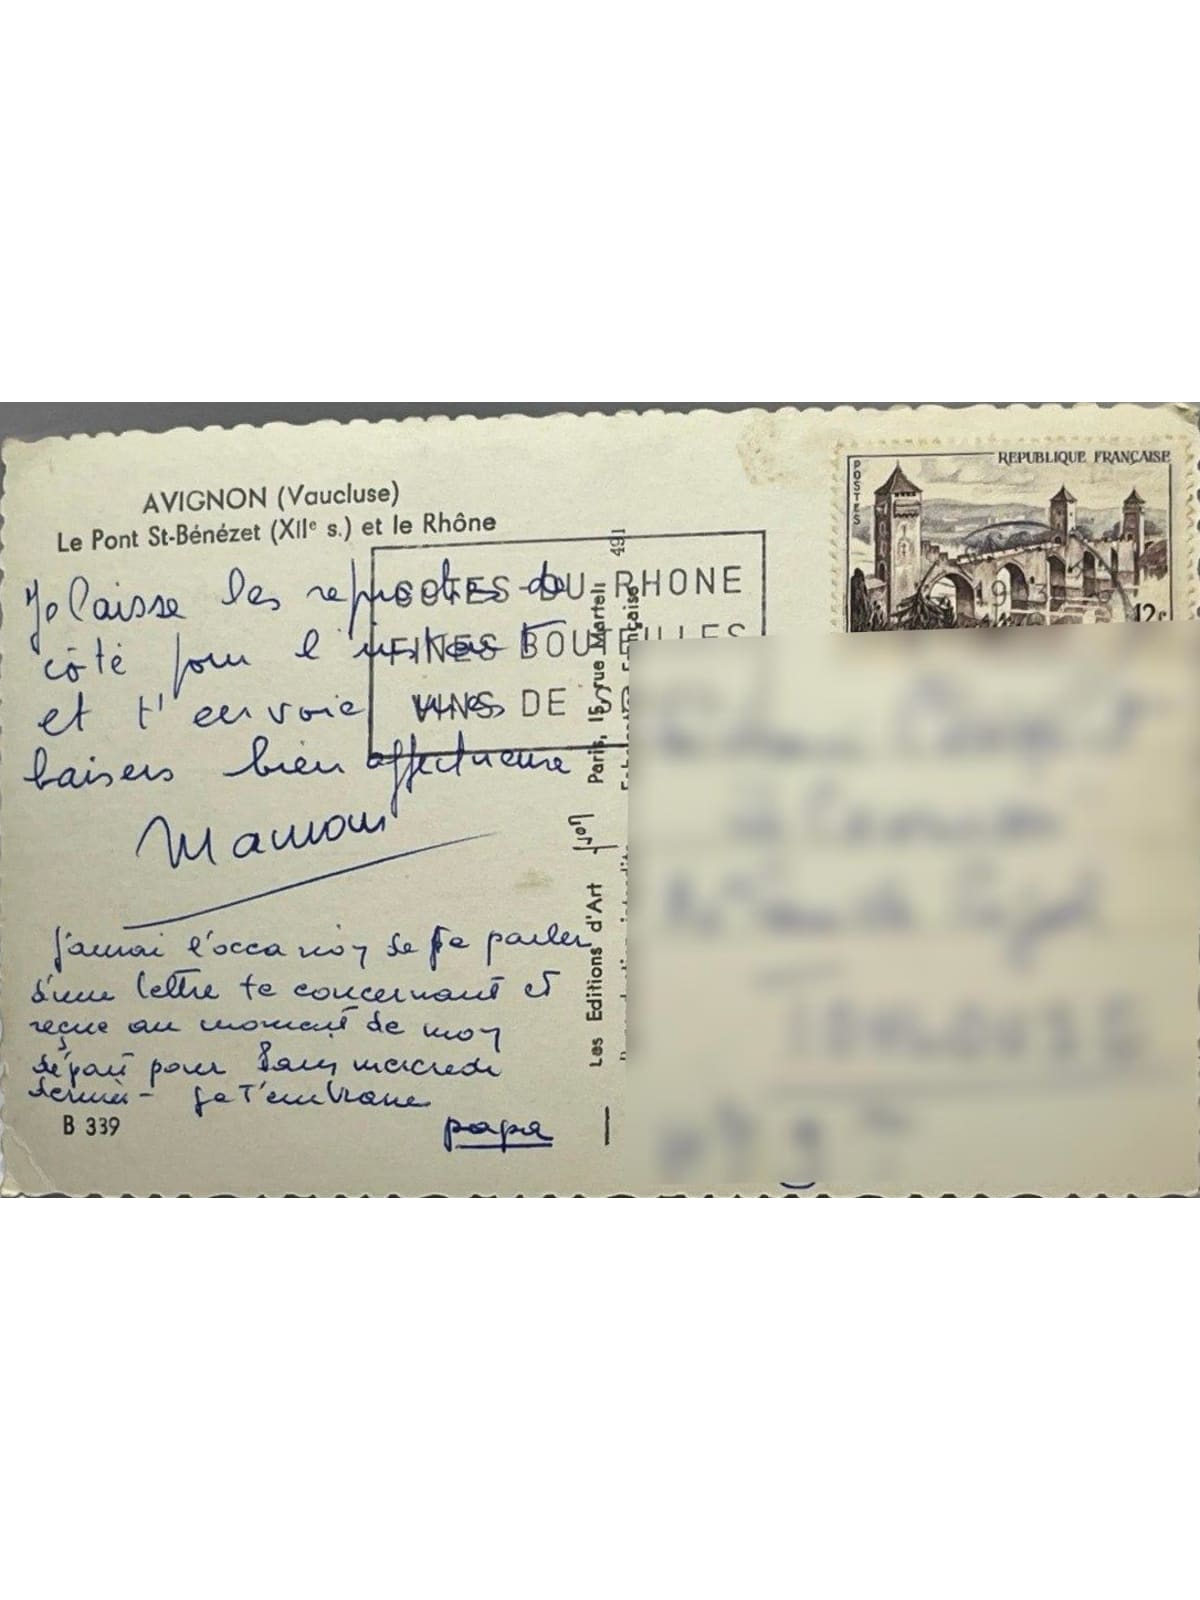 AVIGNON (Vaucluse)
Le Pont St-Bénézet (XIIe s.) et le Rhône
Je laisse les reproches de
côté pour l'instant
et t'envoie mes
baisers bien affectueux
Maman
J'aurai l'occasion de te parler
d'une lettre te concernant et
reçue au moment de mon
départ pour Paris mercredi
dernier - Je t'embrasse
papa
B 339
COTES-DU-RHONE
FINES BOUTEILLES
VINS DE
Les Editions d'Art Yvon Paris, 15, rue Martel
Française
491
POSTES
REPUBLIQUE FRANÇAISE
12F